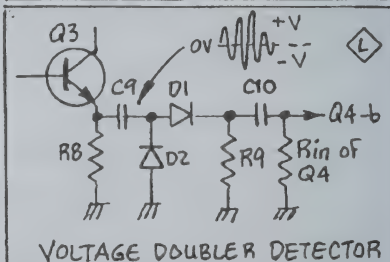 Q3
0V
+V
-V
L
C9
D1
C10
Q4-b
R8
D2
R9
Rin of
Q4
VOLTAGE DOUBLER DETECTOR